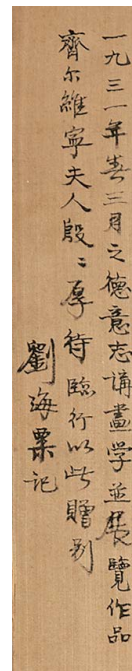 一九三一年春三月之德意志講畫学並展覽作品
齊尔維寧夫人殷〻厚待臨行以此贈別
劉海粟记